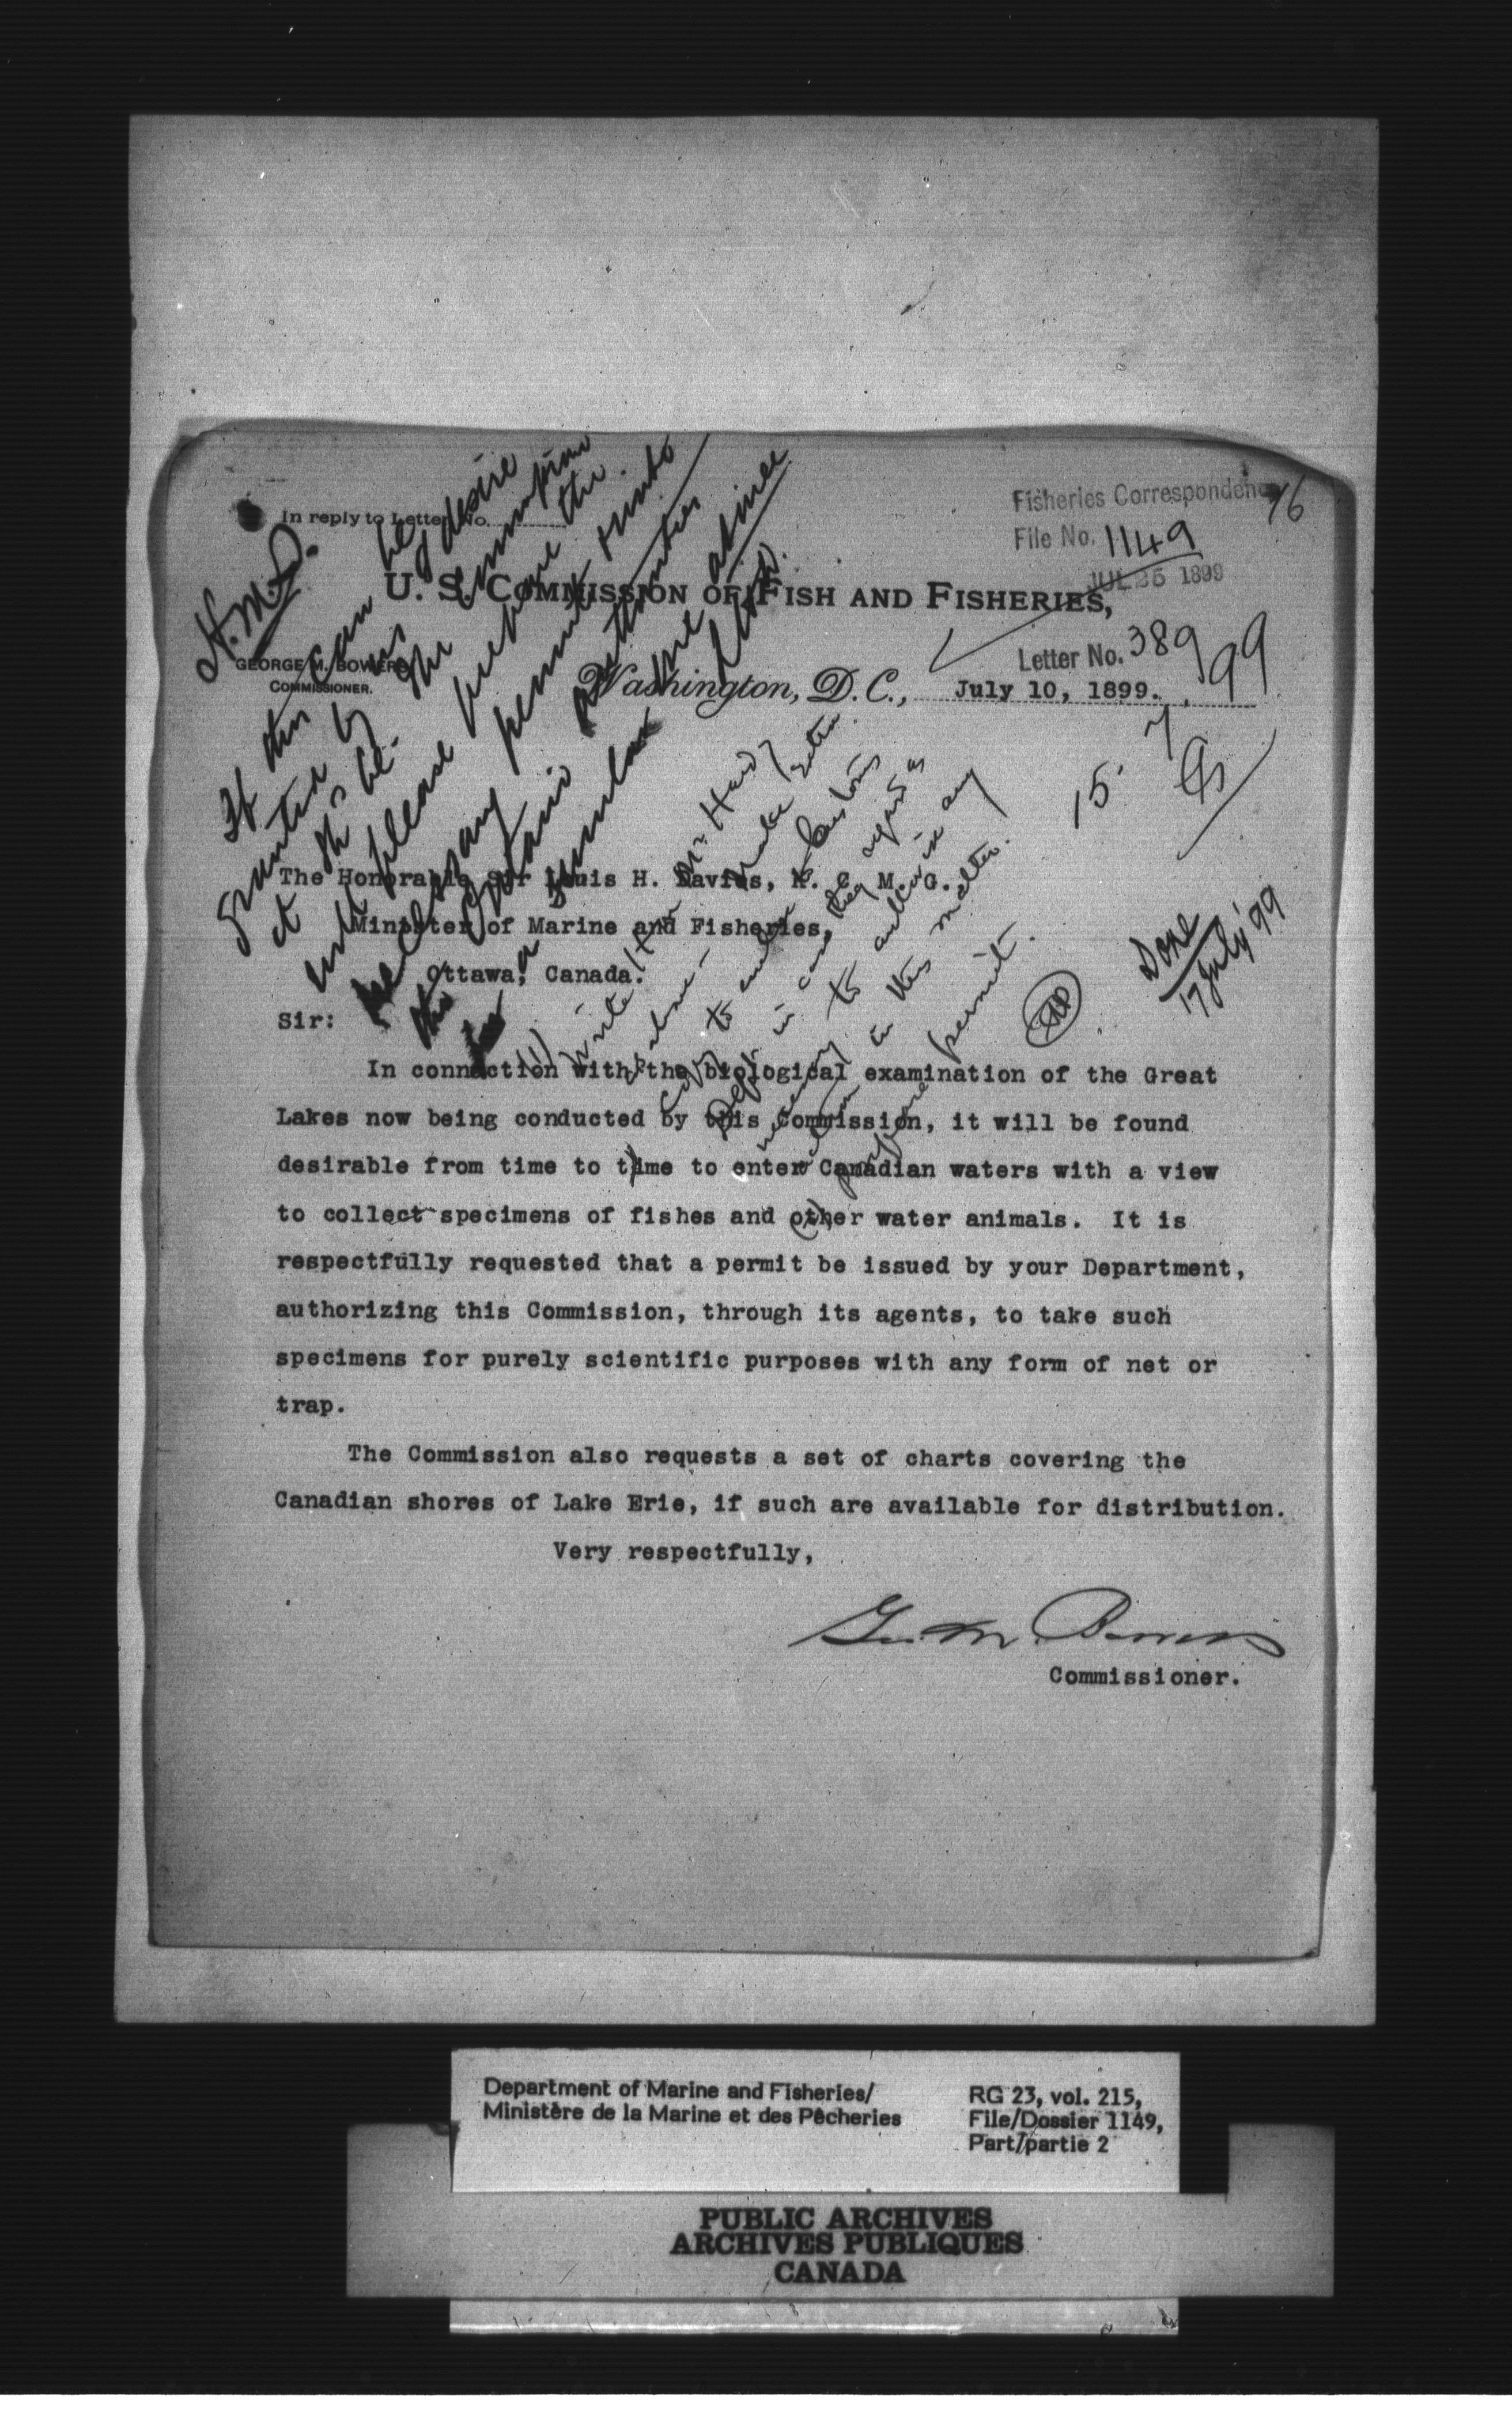 Fisheries Correspondence
76
In reply to Letter No.
File No. 1149
JUL 25 1899
U. S. COMMISSION OF FISH AND FISHERIES,
Letter No. 389
99
GEORGE M. BOWERS,
COMMISSIONER.
Washington, D. C., July 10, 1899.
If this can be
granted by us I desire
it sh'd be.
will please prepare the
necessary permit
this Ontario authorities
for a similar one
15. 7
The Honorable Sir Louis H. Davies, K. C. M. G.
Minister of Marine and Fisheries,
Ottawa, Canada.
Done
17 July '99
Sir:
(1) Write
to Customs
in this matter.
(2) prepare permit.
In connection with the biological examination of the Great
Lakes now being conducted by this Commission, it will be found
desirable from time to time to enter Canadian waters with a view
to collect specimens of fishes and other water animals. It is
respectfully requested that a permit be issued by your Department,
authorizing this Commission, through its agents, to take such
specimens for purely scientific purposes with any form of net or
trap.
The Commission also requests a set of charts covering the
Canadian shores of Lake Erie, if such are available for distribution.
Very respectfully,
Geo. M. Bowers
Commissioner.
Department of Marine and Fisheries/
Ministère de la Marine et des Pêcheries
RG 23, vol. 215,
File/Dossier 1149,
Part/partie 2
PUBLIC ARCHIVES
ARCHIVES PUBLIQUES
CANADA